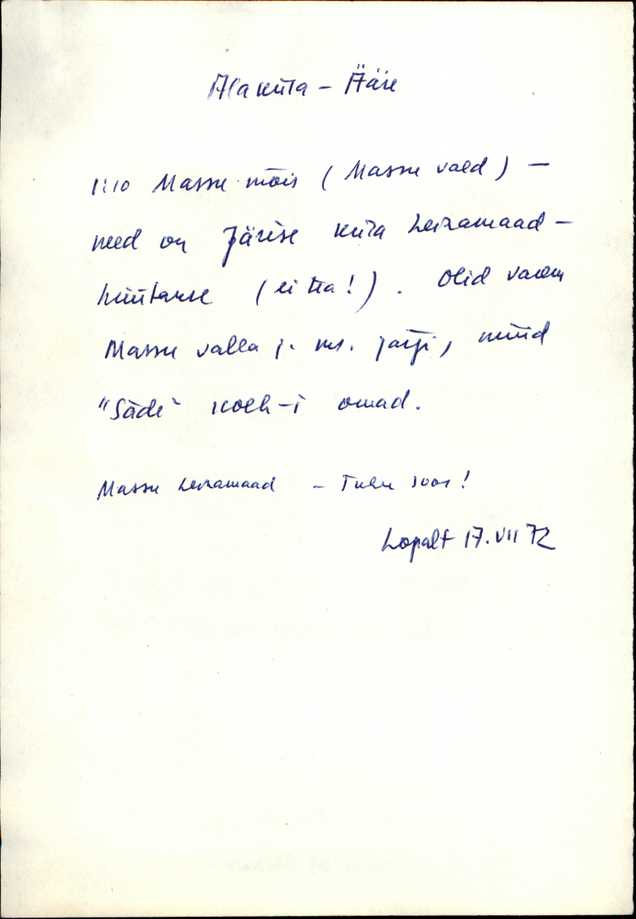 Alaküla – Ääre
1:10 Massu mõis (Massu vald) –
need on Järise küla heinamaad –
hüütakse (ei tea!). Olid varem
Massu valla j. ms. järgi, nüüd
"Säde" kolh-i omad.
Massu heinamaad – Tuhu soos!
Lopalt 17.VII 72